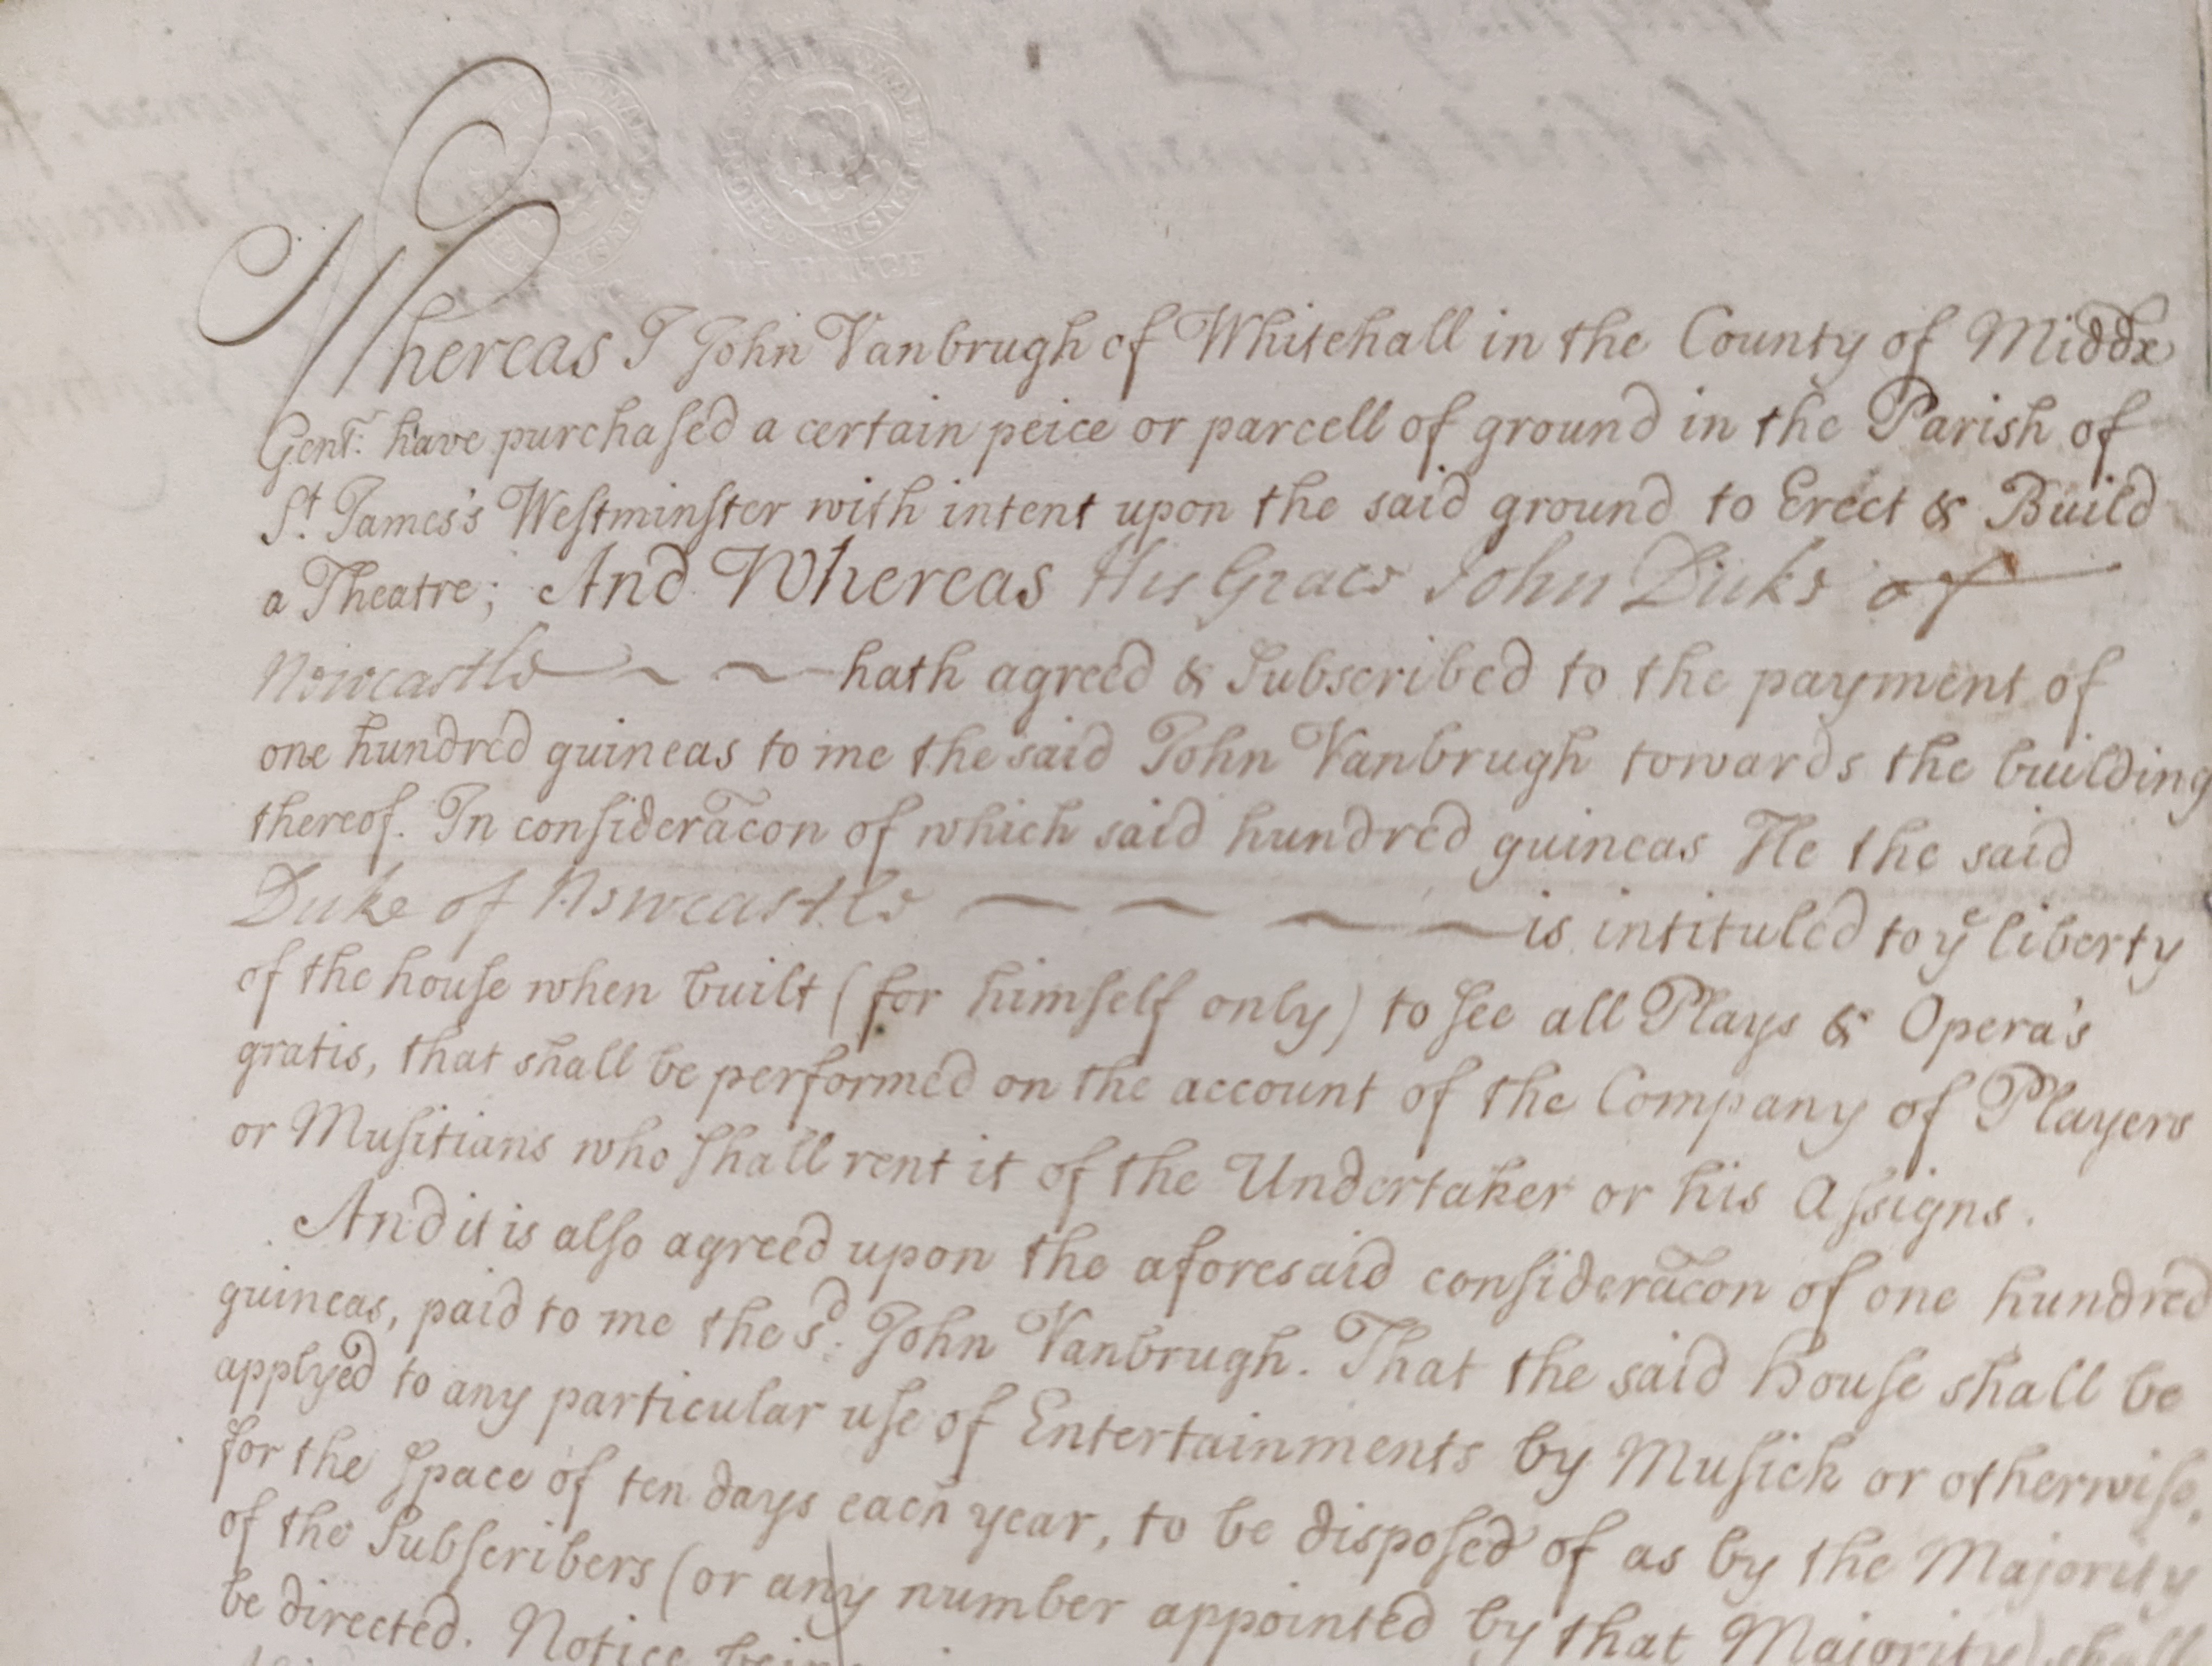 Whereas I John Vanbrugh of Whitehall in the County of Middx
Gent. have purchased a certain peice or parcell of ground in the Parish of
St. James's Westminster with intent upon the said ground to Erect & Build
a Theatre; And Whereas His Grace John Duke of
Newcastle hath agreed & Subscribed to the payment of
one hundred guineas to me the said John Vanbrugh towards the building
thereof. In consideracon of which said hundred guineas He the said
Duke of Newcastle is intituled to ye liberty
of the house when built (for himself only) to see all Plays & Opera's
gratis, that shall be performed on the account of the Company of Players
or Musitians who shall rent it of the Undertaker or his Assigns.
And it is also agreed upon the aforesaid consideracon of one hundred
guineas, paid to me the sd. John Vanbrugh. That the said house shall be
applyed to any particular use of Entertainments by Musick or otherwise,
for the space of ten days each year, to be disposed of as by the Majority
of the Subscribers (or any number appointed by that Majority) shall
be directed. Notice being